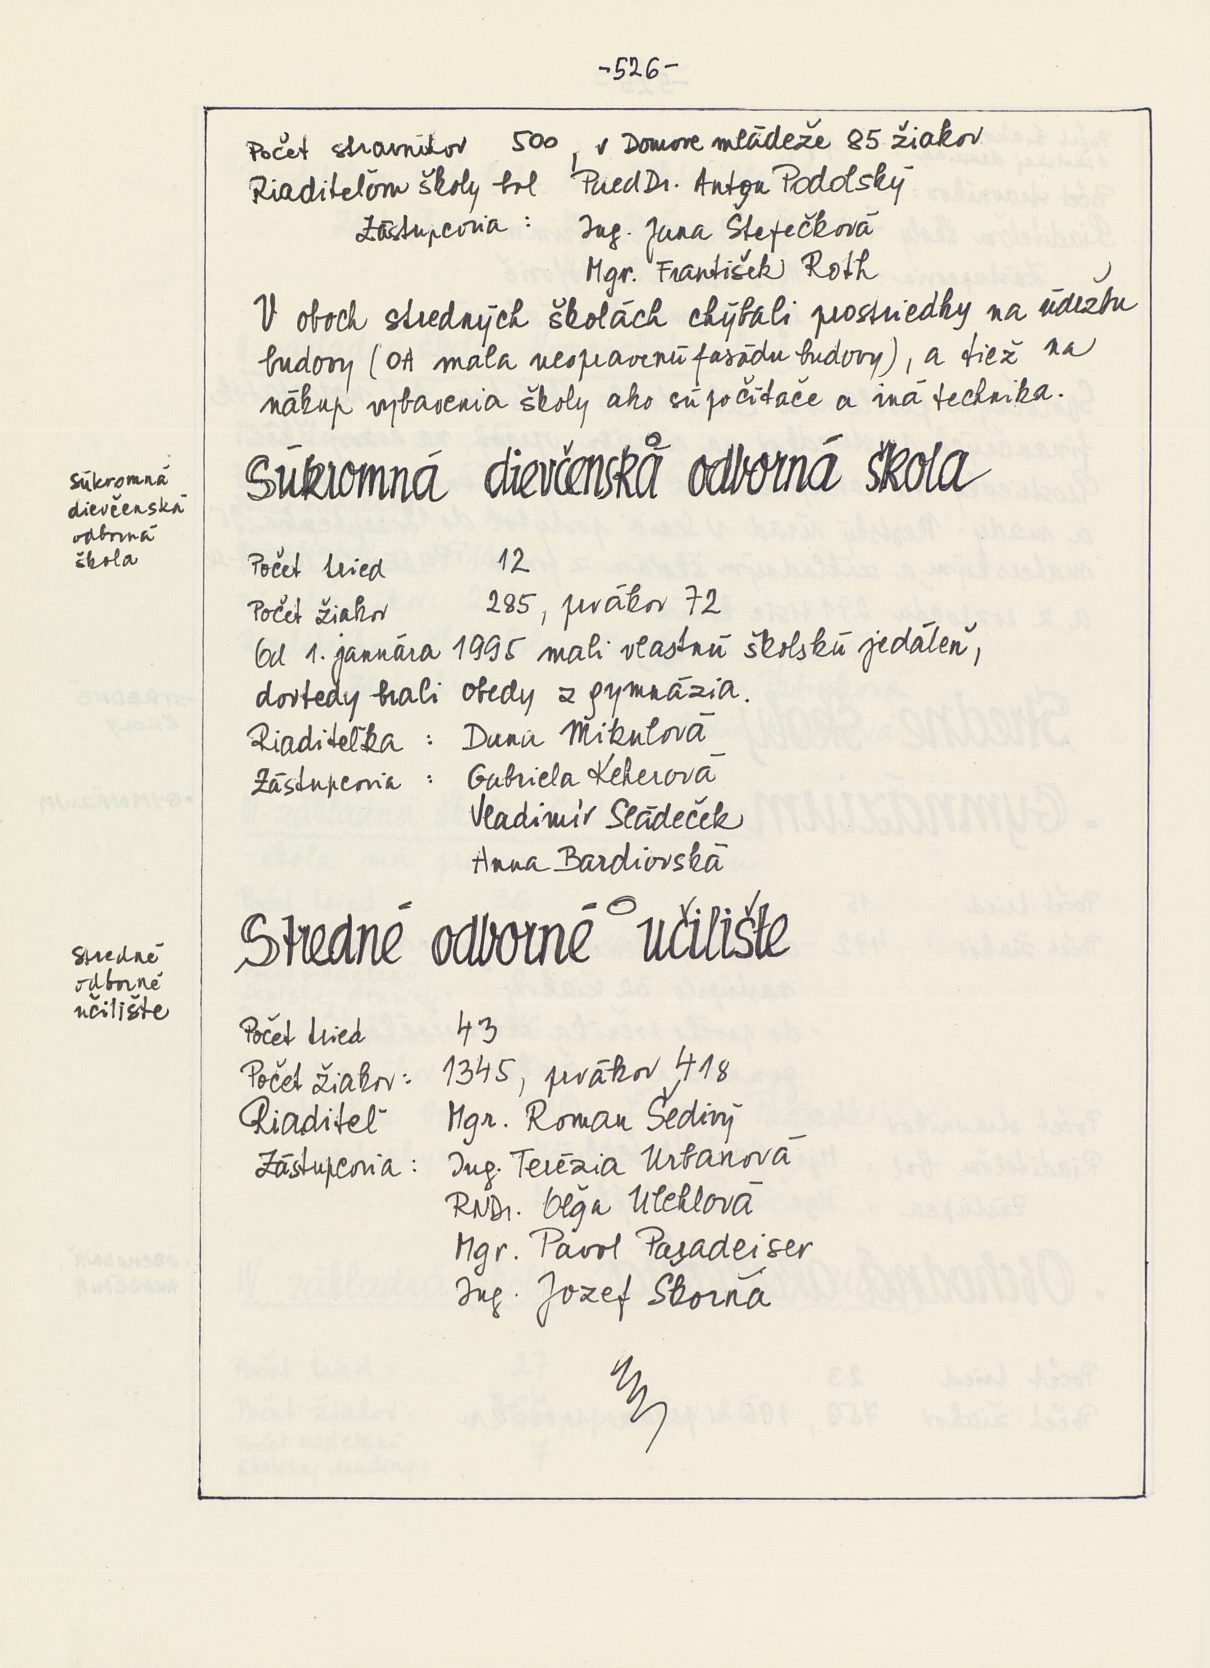 -526-
Počet stravníkov 500, v Domove mládeže 85 žiakov
Riaditeľom školy bol PaedDr. Anton Podolský
Zástupcovia : Ing. Jana Štefečková
Mgr. František Roth
V oboch stredných školách chýbali prostriedky na údržbu
budovy (OA mala neopravenú fasádu budovy), a tiež na
nákup vybavenia školy ako sú počítače a iná technika.
Súkromná
dievčenská
odborná
škola
Súkromná dievčenská odborná škola
Počet tried 12
Počet žiakov 285, prvákov 72
Od 1. januára 1995 mali vlastnú školskú jedáleň,
dovtedy brali obedy z gymnázia.
Riaditeľka : Dana Mikulová
Zástupcovia : Gabriela Keherová
Vladimír Sládeček
Anna Bardiovská
Stredné
odborné
učilište
Stredné odborné učilište
Počet tried 43
Počet žiakov: 1345, prvákov 418
Riaditeľ Mgr. Roman Šedivý
Zástupcovia : Ing. Terézia Urbanová
RNDr. Oľga Ulehlová
Mgr. Pavol Pasadeiser
Ing. Jozef Škorňa